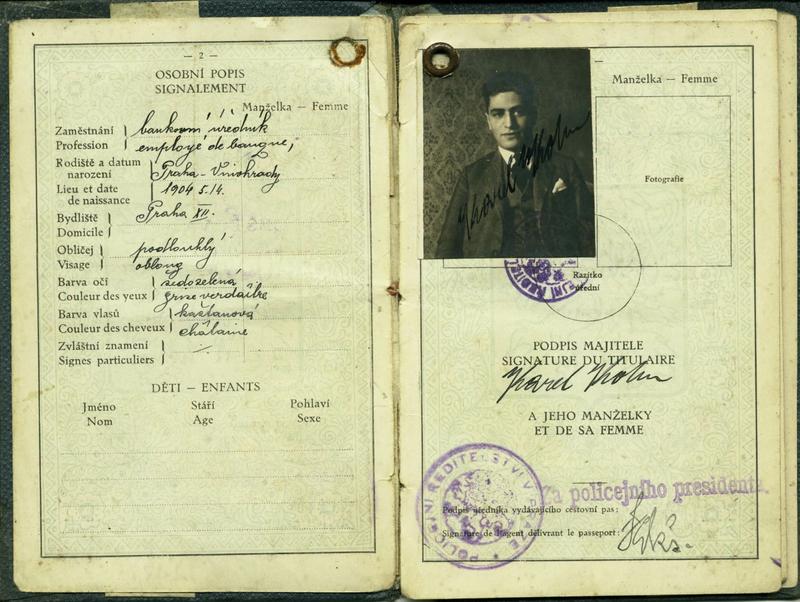 — 2 —
OSOBNÍ POPIS
SIGNALEMENT
Manželka — Femme
Zaměstnání bankovní úředník
Profession employé de banque,
Rodiště a datum
narození Praha-Vinohrady
Lieu et date
de naissance 1904 5.14.
Bydliště Praha XII.
Domicile
Obličej podlouhlý
Visage oblong
Barva očí šedozelená
Couleur des yeux grise verdâtre
Barva vlasů kaštanová
Couleur des cheveux châtaine
Zvláštní znamení
Signes particuliers
DĚTI — ENFANTS
Jméno Stáří Pohlaví
Nom Age Sexe
Manželka — Femme
Karel Kohn
Fotografie
Razítko
úřední
PODPIS MAJITELE
SIGNATURE DU TITULAIRE
Karel Kohn
A JEHO MANŽELKY
ET DE SA FEMME
Za policejního presidenta
Podpis úředníka vydávajícího cestovní pas:
Signature de l'agent délivrant le passeport:
POLICEJNÍ ŘEDITELSTVÍ V PRAZE